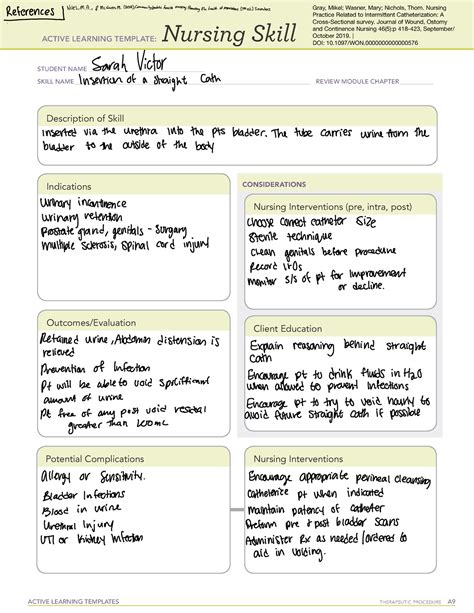 References
Gray, Mikel; Wasner, Mary; Nichols, Thom. Nursing
Practice Related to Intermittent Catheterization: A
Cross-Sectional survey. Journal of Wound, Ostomy
and Continence Nursing 46(5):p 418-423, September/
October 2019. |
DOI: 10.1097/WON.0000000000000576
ACTIVE LEARNING TEMPLATE: Nursing Skill
STUDENT NAME Sarah Victor
SKILL NAME Insertion of a Straight Cath
REVIEW MODULE CHAPTER
Description of Skill
Inserted via the urethra into the pts bladder. The tube carries urine from the
bladder to the outside of the body
Indications
Urinary incontinence
Urinary retention
Prostate gland, genitals - Surgery
multiple Sclerosis, Spinal cord injury
CONSIDERATIONS
Nursing Interventions (pre, intra, post)
Choose correct catheter Size
Sterile technique
Clean genitals before procedure
Record I+Os
Monitor s/s of pt for improvement
or decline.
Outcomes/Evaluation
Retained urine, Abdomen distension is
relieved
Prevention of Infection
Pt will be able to void sufficient
amount of urine
Pt free of any post void residual
greater than 100mL
Client Education
Explain reasoning behind straight
cath
Encourage pt to drink fluids in H2O
when allowed to prevent infections
Encourage pt to try to void hourly to
avoid future straight cath if possible
Potential Complications
Allergy or Sensitivity.
Bladder Infections
Blood in urine
Urethral Injury
UTI or Kidney Infection
Nursing Interventions
Encourage appropriate perineal cleansing
Catheterize pt when indicated
Maintain patency of catheter
Perform pre & post bladder scans
Administer Rx as needed/ordered to
aid in voiding.
ACTIVE LEARNING TEMPLATES
THERAPEUTIC PROCEDURE A9